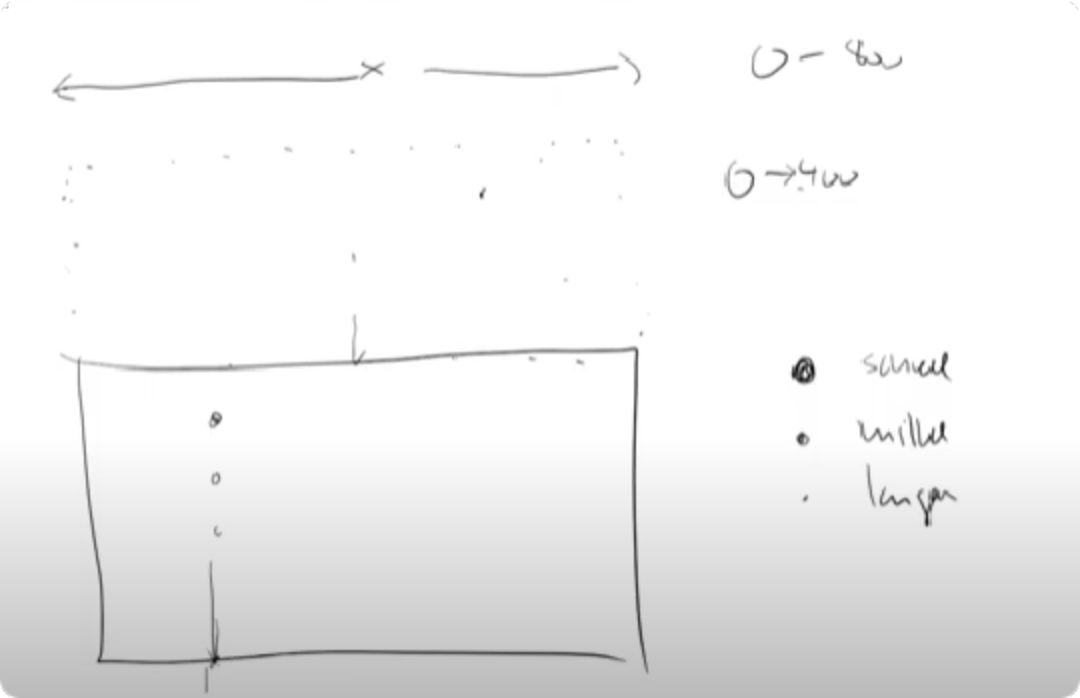 0 - 800
0 → 400
schnell
mittel
langsam